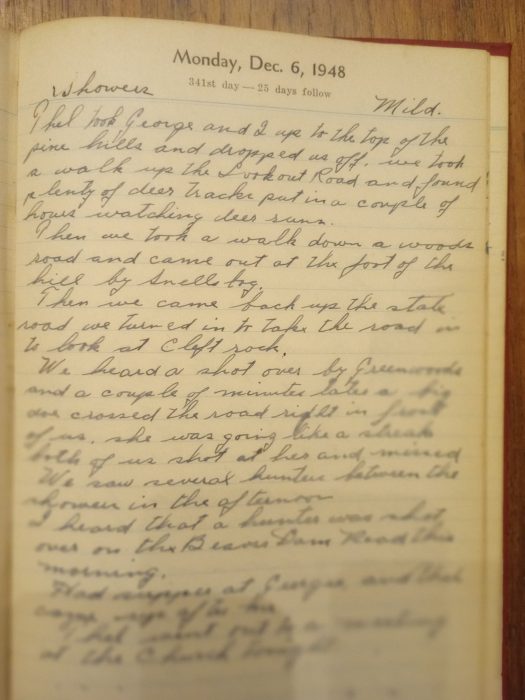 Monday, Dec. 6, 1948
341st day — 25 days follow
Showers Mild.
Thel took George and I up to the top of the
pine hills and dropped us off. we took
a walk up the Lookout Road and found
plenty of deer tracks put in a couple of
hours watching deer runs.
Then we took a walk down a woods
road and came out at the foot of the
hill by Snells bog.
Then we came back up the state
road we turned in to take the road in
to look at Cleft rock.
We heard a shot over by Greenwoods
and a couple of minutes later a big
doe crossed the road right in front
of us. she was going like a streak
both of us shot at her and missed
We saw several hunters between the
showers in the afternoon
I heard that a hunter was shot
over on the Beaver Dam Road this
morning.
Had supper at Georges and Thel
came up after me
Thel went out to a meeting
at the Church tonight